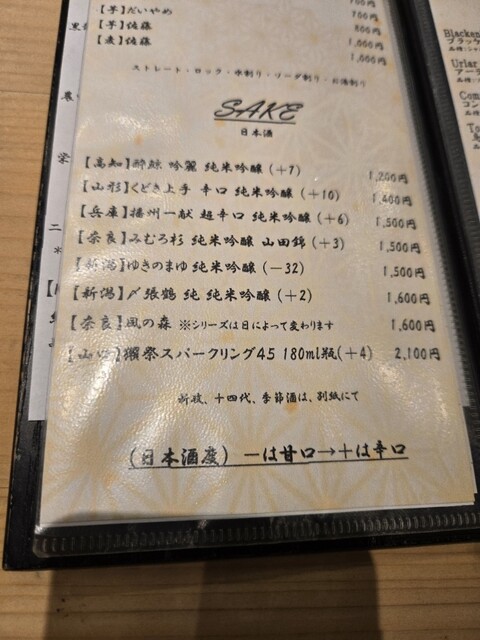 700円
【芋】だいやめ 700円
【芋】佐藤 800円
【麦】佐藤 1,000円
1,000円
ストレート・ロック・水割り・ソーダ割り・お湯割り
SAKE
日本酒
【高知】酔鯨 吟麗 純米吟醸 (+7) 1,200円
【山形】くどき上手 辛口 純米吟醸 (+10) 1,400円
【兵庫】播州一献 超辛口 純米吟醸 (+6) 1,500円
【奈良】みむろ杉 純米吟醸 山田錦 (+3) 1,500円
【新潟】ゆきのまゆ 純米吟醸 (-32) 1,500円
【新潟】〆張鶴 純 純米吟醸 (+2) 1,600円
【奈良】風の森 ※シリーズは日によって変わります 1,600円
【山口】獺祭スパークリング45 180ml瓶(+4) 2,100円
新政、十四代、季節酒は、別紙にて
(日本酒度) -は甘口→+は辛口
Blacken
ブラック
Urlar
アーラ
Com
コン
To